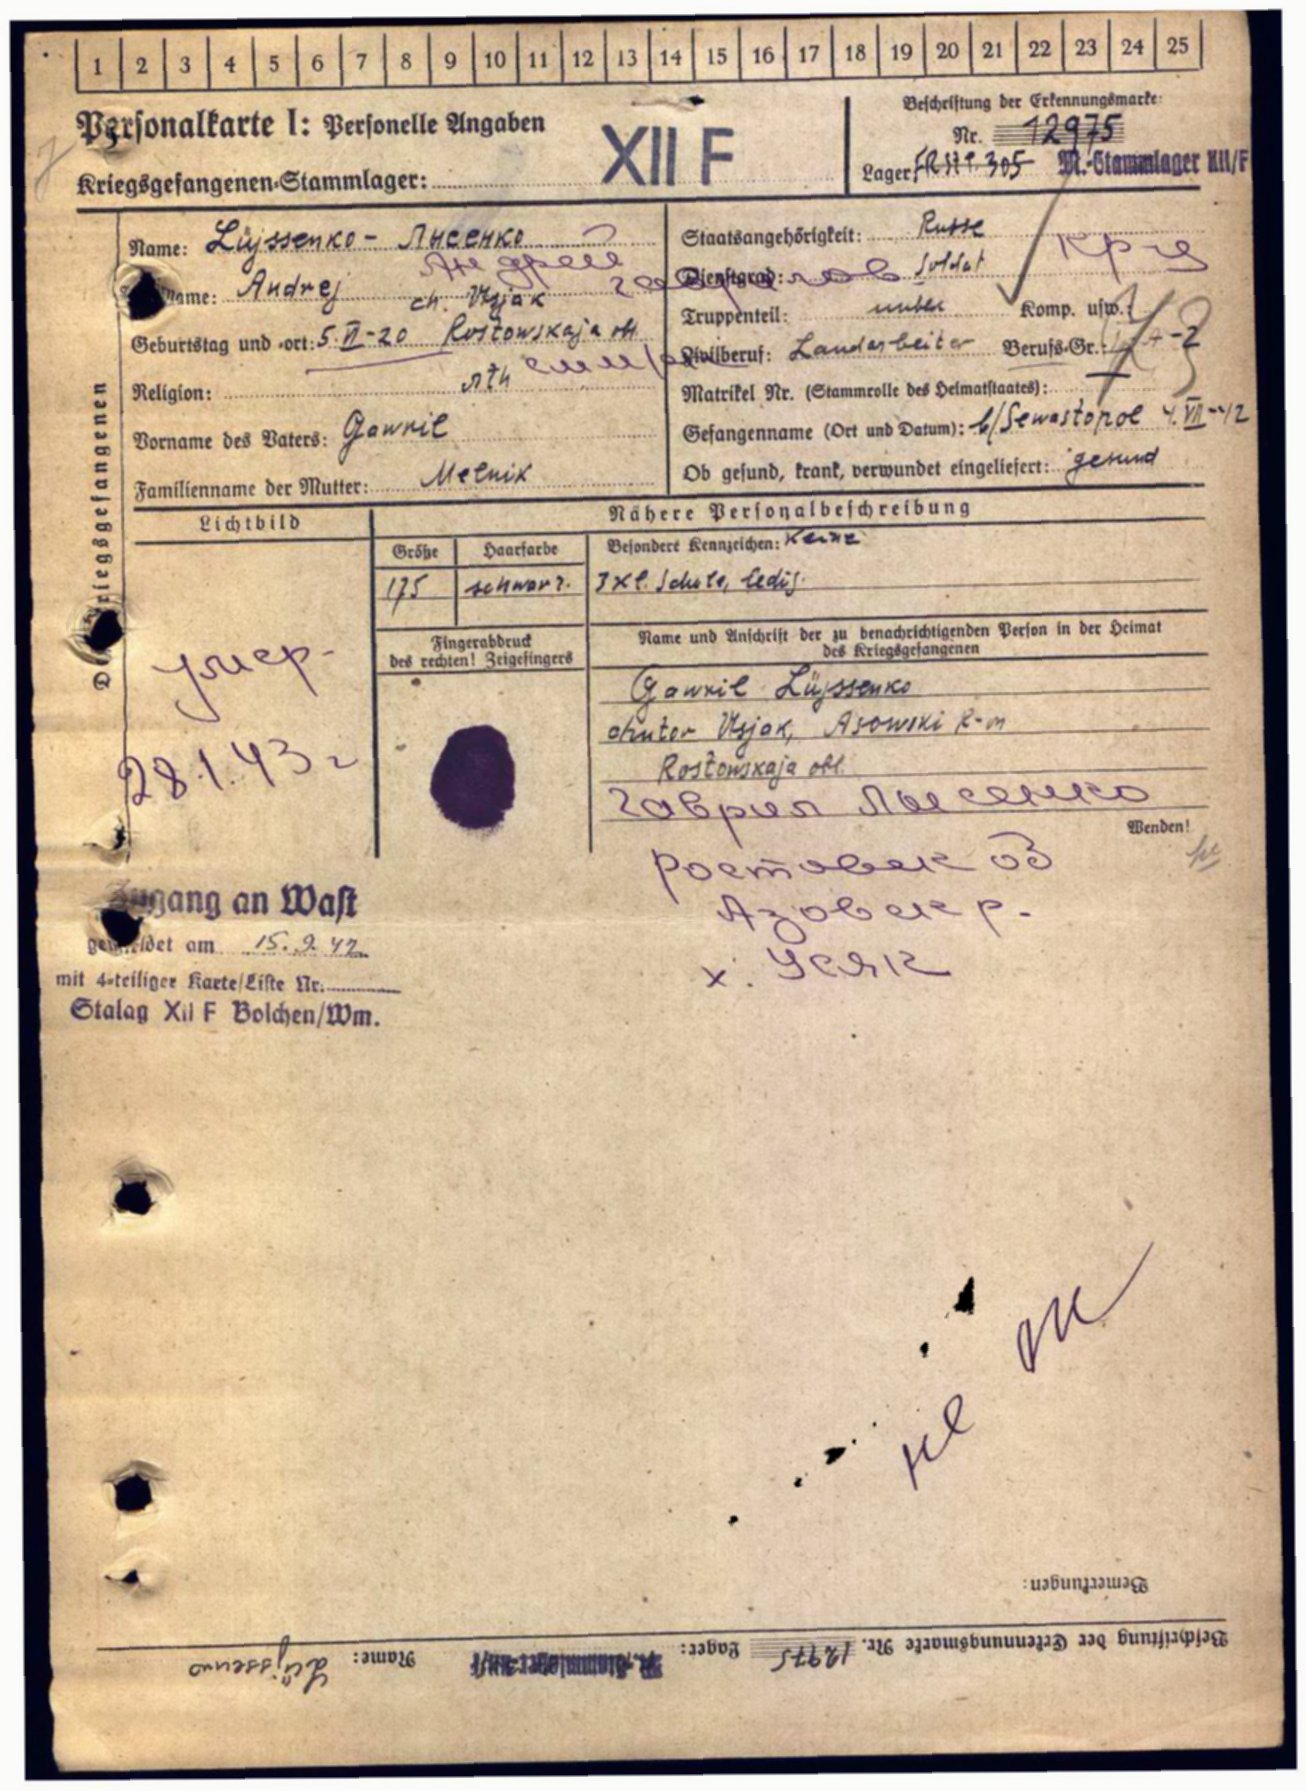 1 2 3 4 5 6 7 8 9 10 11 12 13 14 15 16 17 18 19 20 21 22 23 24 25
Personalkarte I: Personelle Angaben
Kriegsgefangenen-Stammlager: XII F
Beschriftung der Erkennungsmarke:
Nr. 12975
Lager: 305 M.-Stammlager XII/F
Des Kriegsgefangenen
Name: Lüjssenko - Лысенко
Андрей
name: Andrej ch. Usjak
Geburtstag und -ort: 5.VI-20 Rostowskaja obl.
Religion:
Vorname des Vaters: Gawril
Familienname der Mutter: Melnik
Staatsangehörigkeit: Russe
Dienstgrad: Soldat
Truppenteil: Komp. usw.:
Zivilberuf: Landarbeiter Berufs-Gr.: -2
Matrikel Nr. (Stammrolle des Heimatstaates):
Gefangenname (Ort und Datum): b/Sewastopol 4.VII-42
Ob gesund, krank, verwundet eingeliefert: gesund
Lichtbild
Nähere Personalbeschreibung
Größe Haarfarbe Besondere Kennzeichen: Keine
175 schwarz. 3 kl. Schule, ledig.
Fingerabdruck
des rechten! Zeigefingers
Name und Anschrift der zu benachrichtigenden Person in der Heimat
des Kriegsgefangenen
Gawril Lüjssenko
chutor Usjak, Asowski R-n
Rostowskaja obl.
Гаврил Лысенко
Wenden!
Ростовск об
Азовск р.
х. Усяк
умер
28.1.43 г
Zugang an Wast
gemeldet am 15.9.42
mit 4-teiliger Karte/Liste Nr.
Stalag XII F Bolchen/Wm.
Bemerkungen:
Beschriftung der Erkennungsmarke Nr. 12975 Lager: M.-Stammlager XII/F Name: Lüjssenko